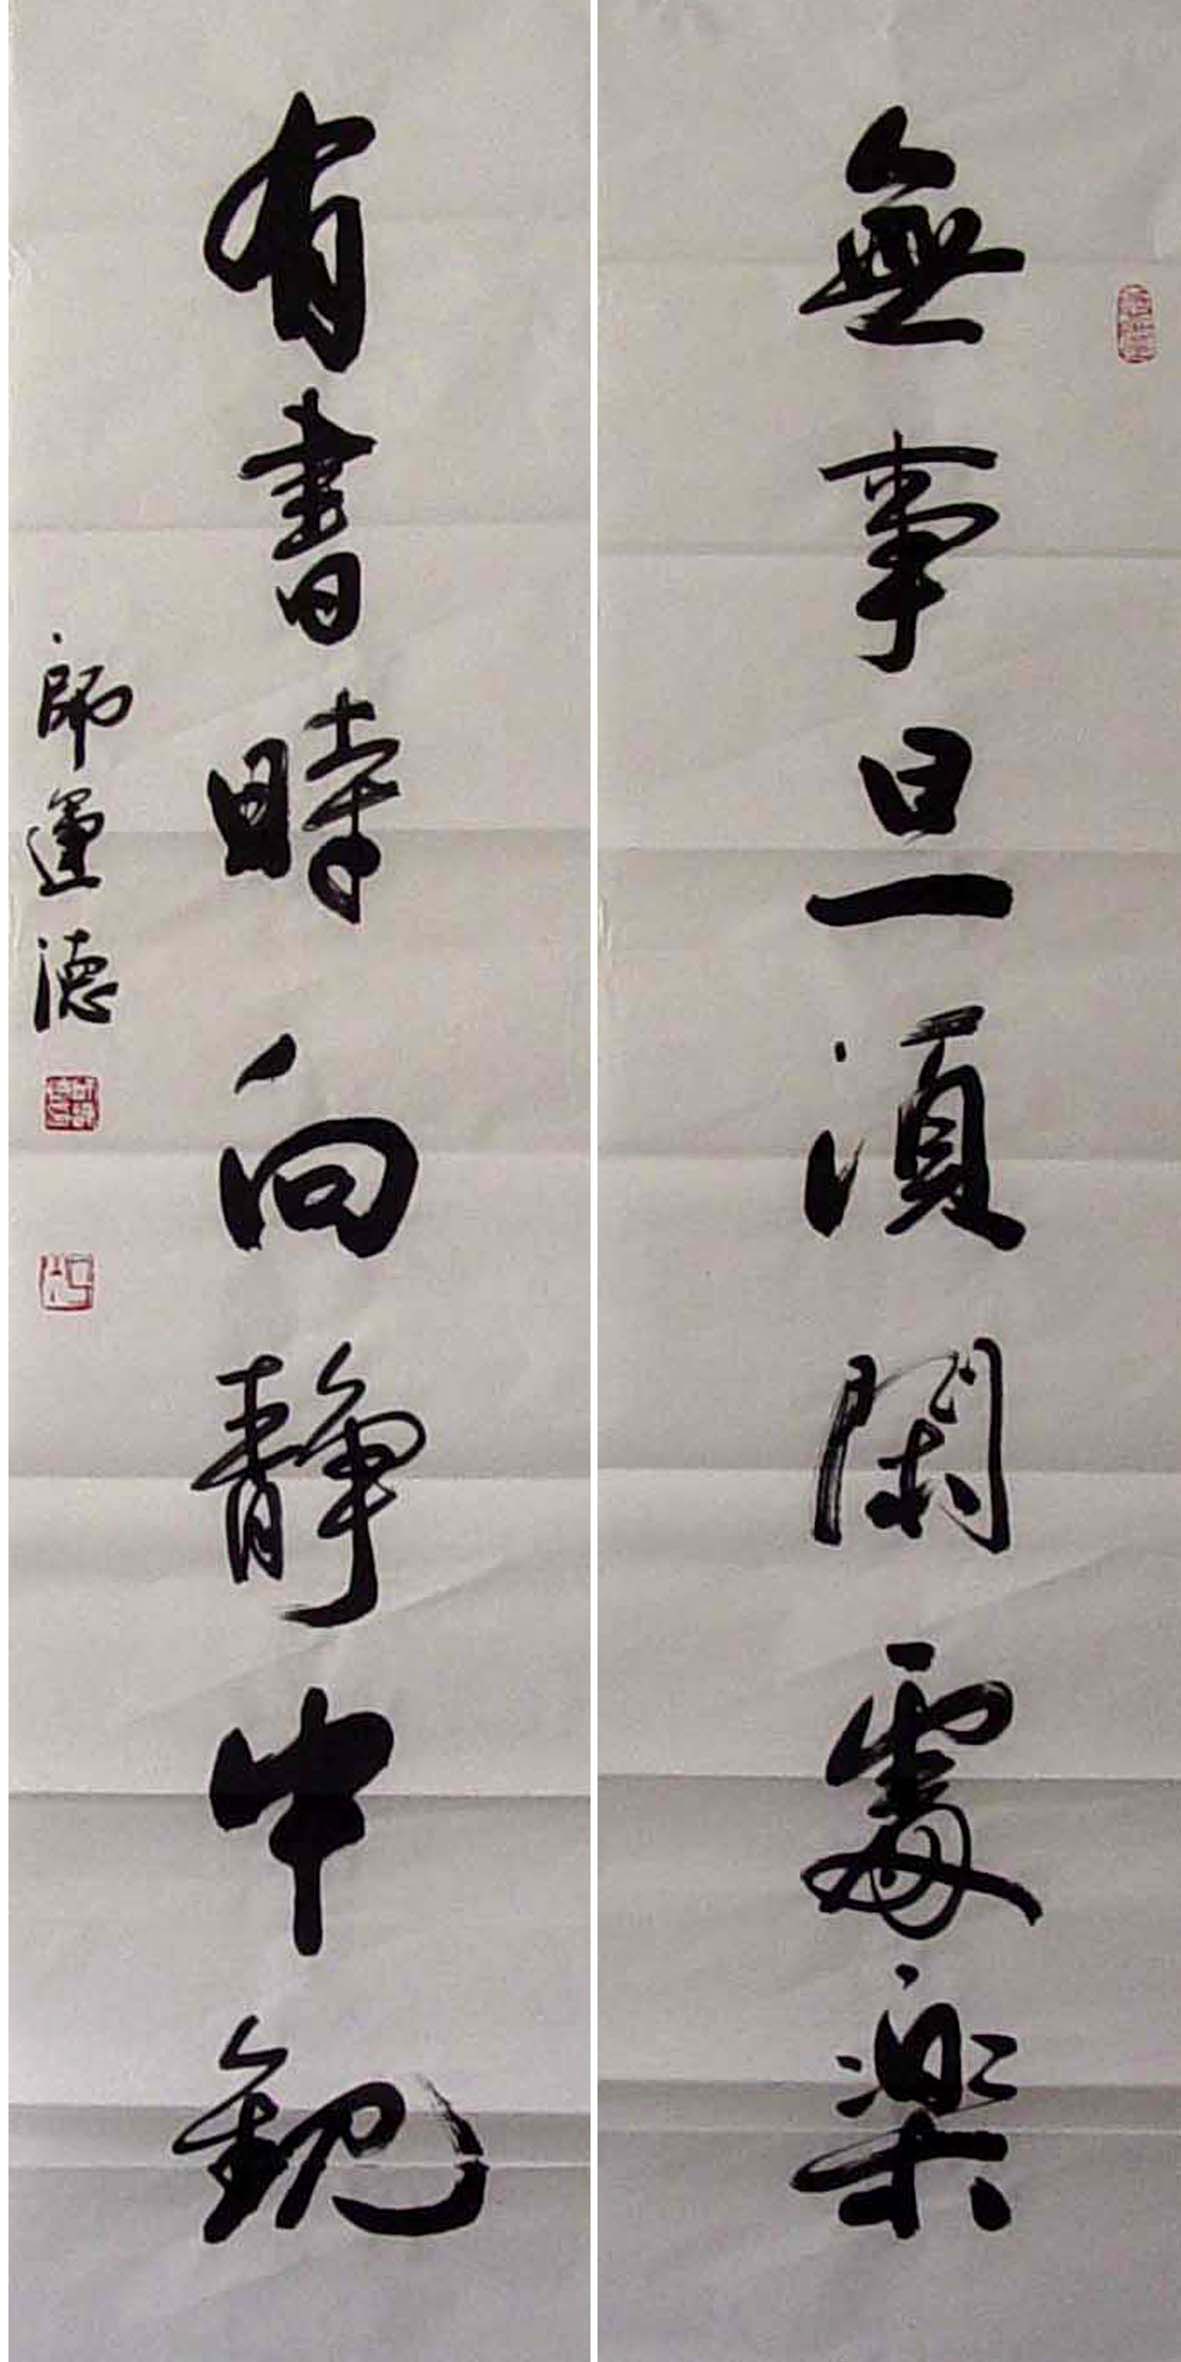 無事旦須閑處樂
有書時向靜中觀
師運德